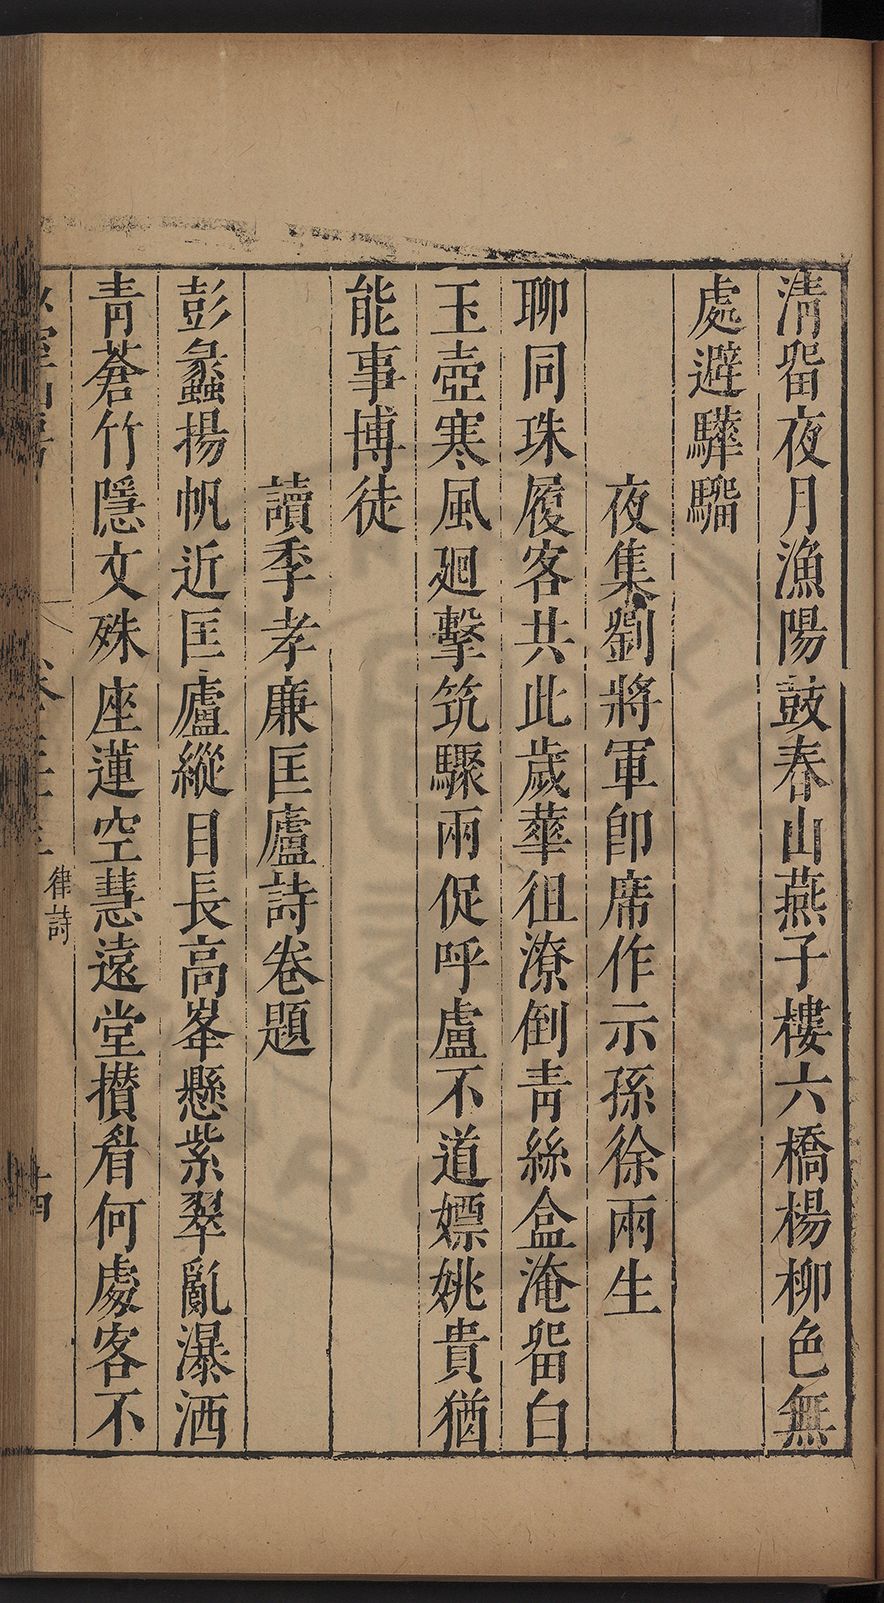 清畱夜月漁陽鼓春山燕子樓六橋楊柳色無
處避驊騮
夜集劉將軍卽席作示孫徐兩生
聊同珠履客共此歲華徂潦倒青絲盒淹畱白
玉壺寒風廻擊筑驟雨促呼盧不道嫖姚貴猶
能事博徒
讀季孝廉匡廬詩卷題
彭蠡揚帆近匡廬縱目長高峯懸紫翠亂瀑洒
青蒼竹隱文殊座蓮空慧遠堂攅眉何處客不
律詩